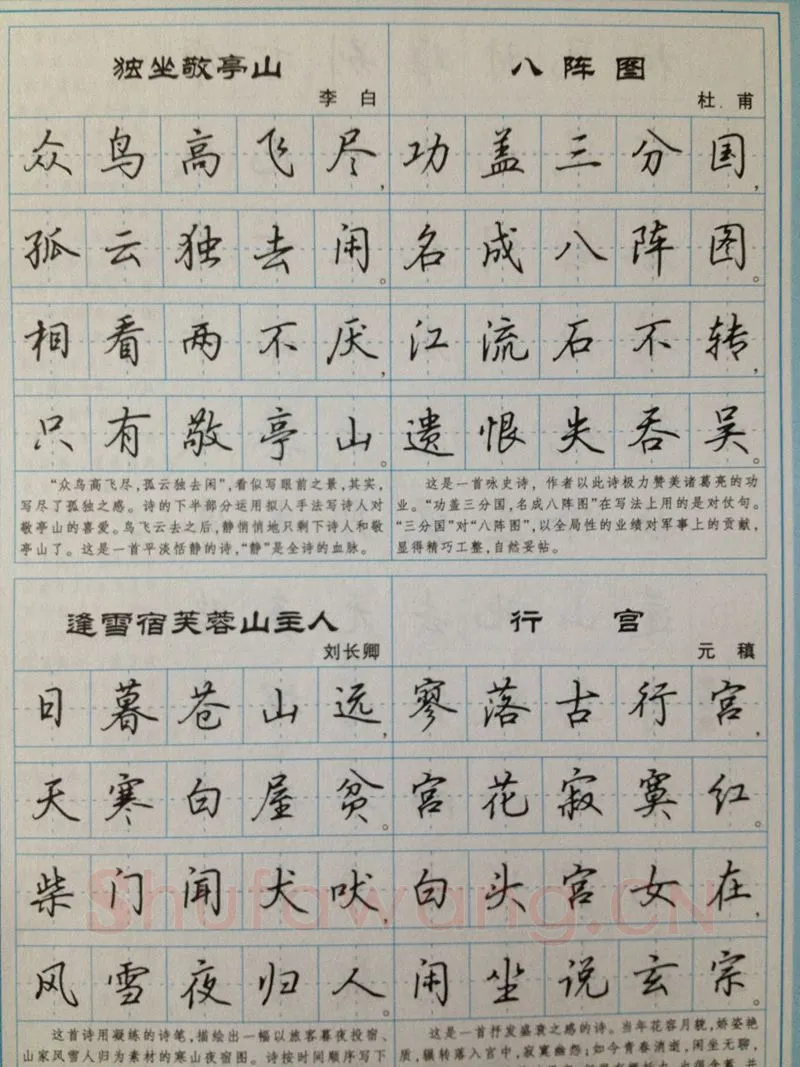 独坐敬亭山
李 白
众鸟高飞尽，
孤云独去闲。
相看两不厌，
只有敬亭山。
“众鸟高飞尽，孤云独去闲”，看似写眼前之景，其实，
写尽了孤独之感。诗的下半部分运用拟人手法写诗人对
敬亭山的喜爱。鸟飞云去之后，静悄悄地只剩下诗人和敬
亭山了。这是一首平淡恬静的诗，“静”是全诗的血脉。
八 阵 图
杜 甫
功盖三分国，
名成八阵图。
江流石不转，
遗恨失吞吴。
这是一首咏史诗，作者以此诗极力赞美诸葛亮的功
业。“功盖三分国，名成八阵图”在写法上用的是对仗句。
“三分国”对“八阵图”，以全局性的业绩对军事上的贡献，
显得精巧工整，自然妥帖。
逢雪宿芙蓉山主人
刘长卿
日暮苍山远，
天寒白屋贫。
柴门闻犬吠，
风雪夜归人
这首诗用凝练的诗笔，描绘出一幅以旅客暮夜投宿、
山家风雪人归为素材的寒山夜宿图。诗按时间顺序写下
行 宫
元 稹
寥落古行宫，
宫花寂寞红。
白头宫女在，
闲坐说玄宗
这是一首抒发盛衰之感的诗。当年花容月貌，娇姿艳
质，辗转落入宫中，寂寞幽怨；如今青春消逝，闲坐无聊，
Shufawang.CN